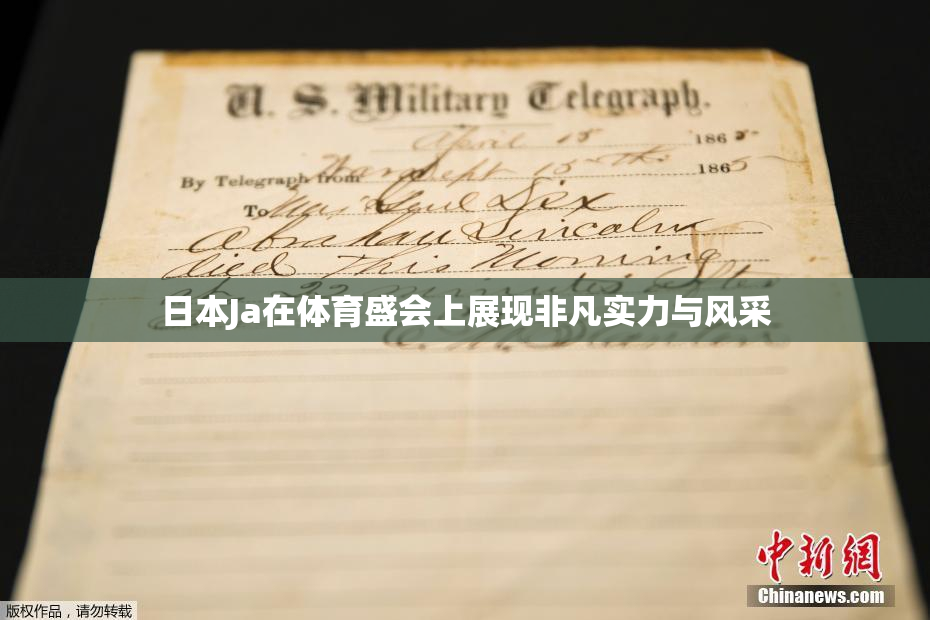 U. S. Military Telegraph.
April 15 1865
By Telegraph from War Dept 15th 1865
To Maj Genl Dix
Abraham Lincoln
died This Morning
at 22 minutes after
日本Ja在体育盛会上展现非凡实力与风采
E. M. Stanton
中新網
Chinanews.com
版权作品，请勿转载